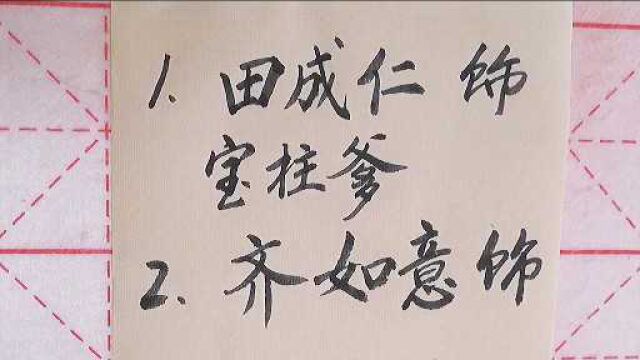 1. 田成仁 饰
宝柱爹
2. 齐如意 饰